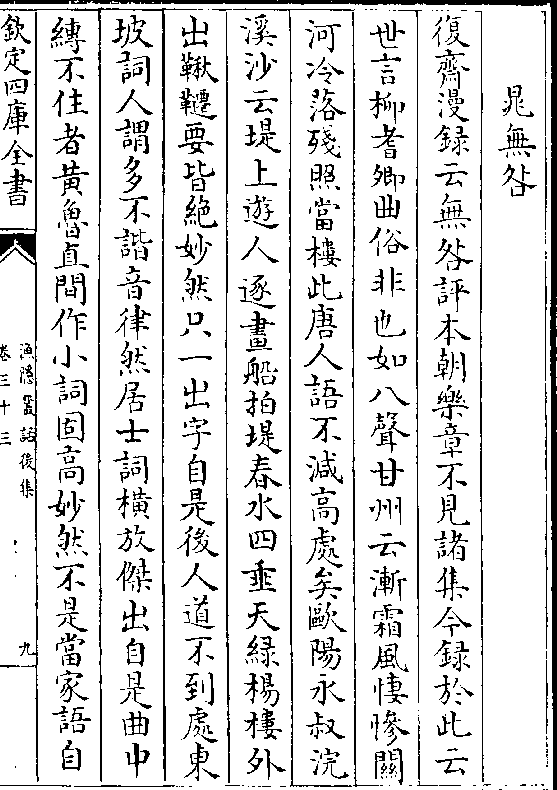 晁無咎
復齋漫録云無咎評本朝樂章不見諸集今録於此云
世言柳耆卿曲俗非也如八聲甘州云漸霜風悽慘關
河冷落殘照當樓此唐人語不減高處矣歐陽永叔浣
溪沙云堤上遊人逐畫船拍堤春水四垂天緑楊樓外
出鞦韆要皆絶妙然只一出字自是後人道不到處東
坡詞人謂多不諧音律然居士詞横放傑出自是曲中
縛不住者黄魯直間作小詞固高妙然不是當家語自
欽定四庫全書
漁隱叢話後集
卷三十三
九